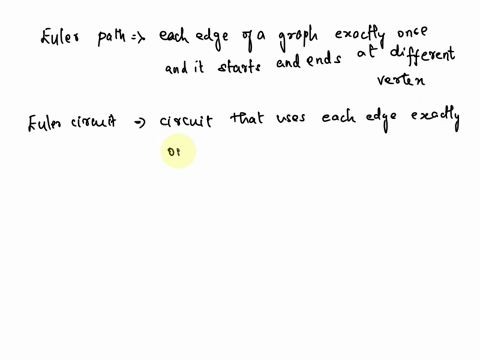 Euler path => each edge of a graph exactly once
and it starts and ends at different
vertex
Euler circuit → circuit that uses each edge exactly
on